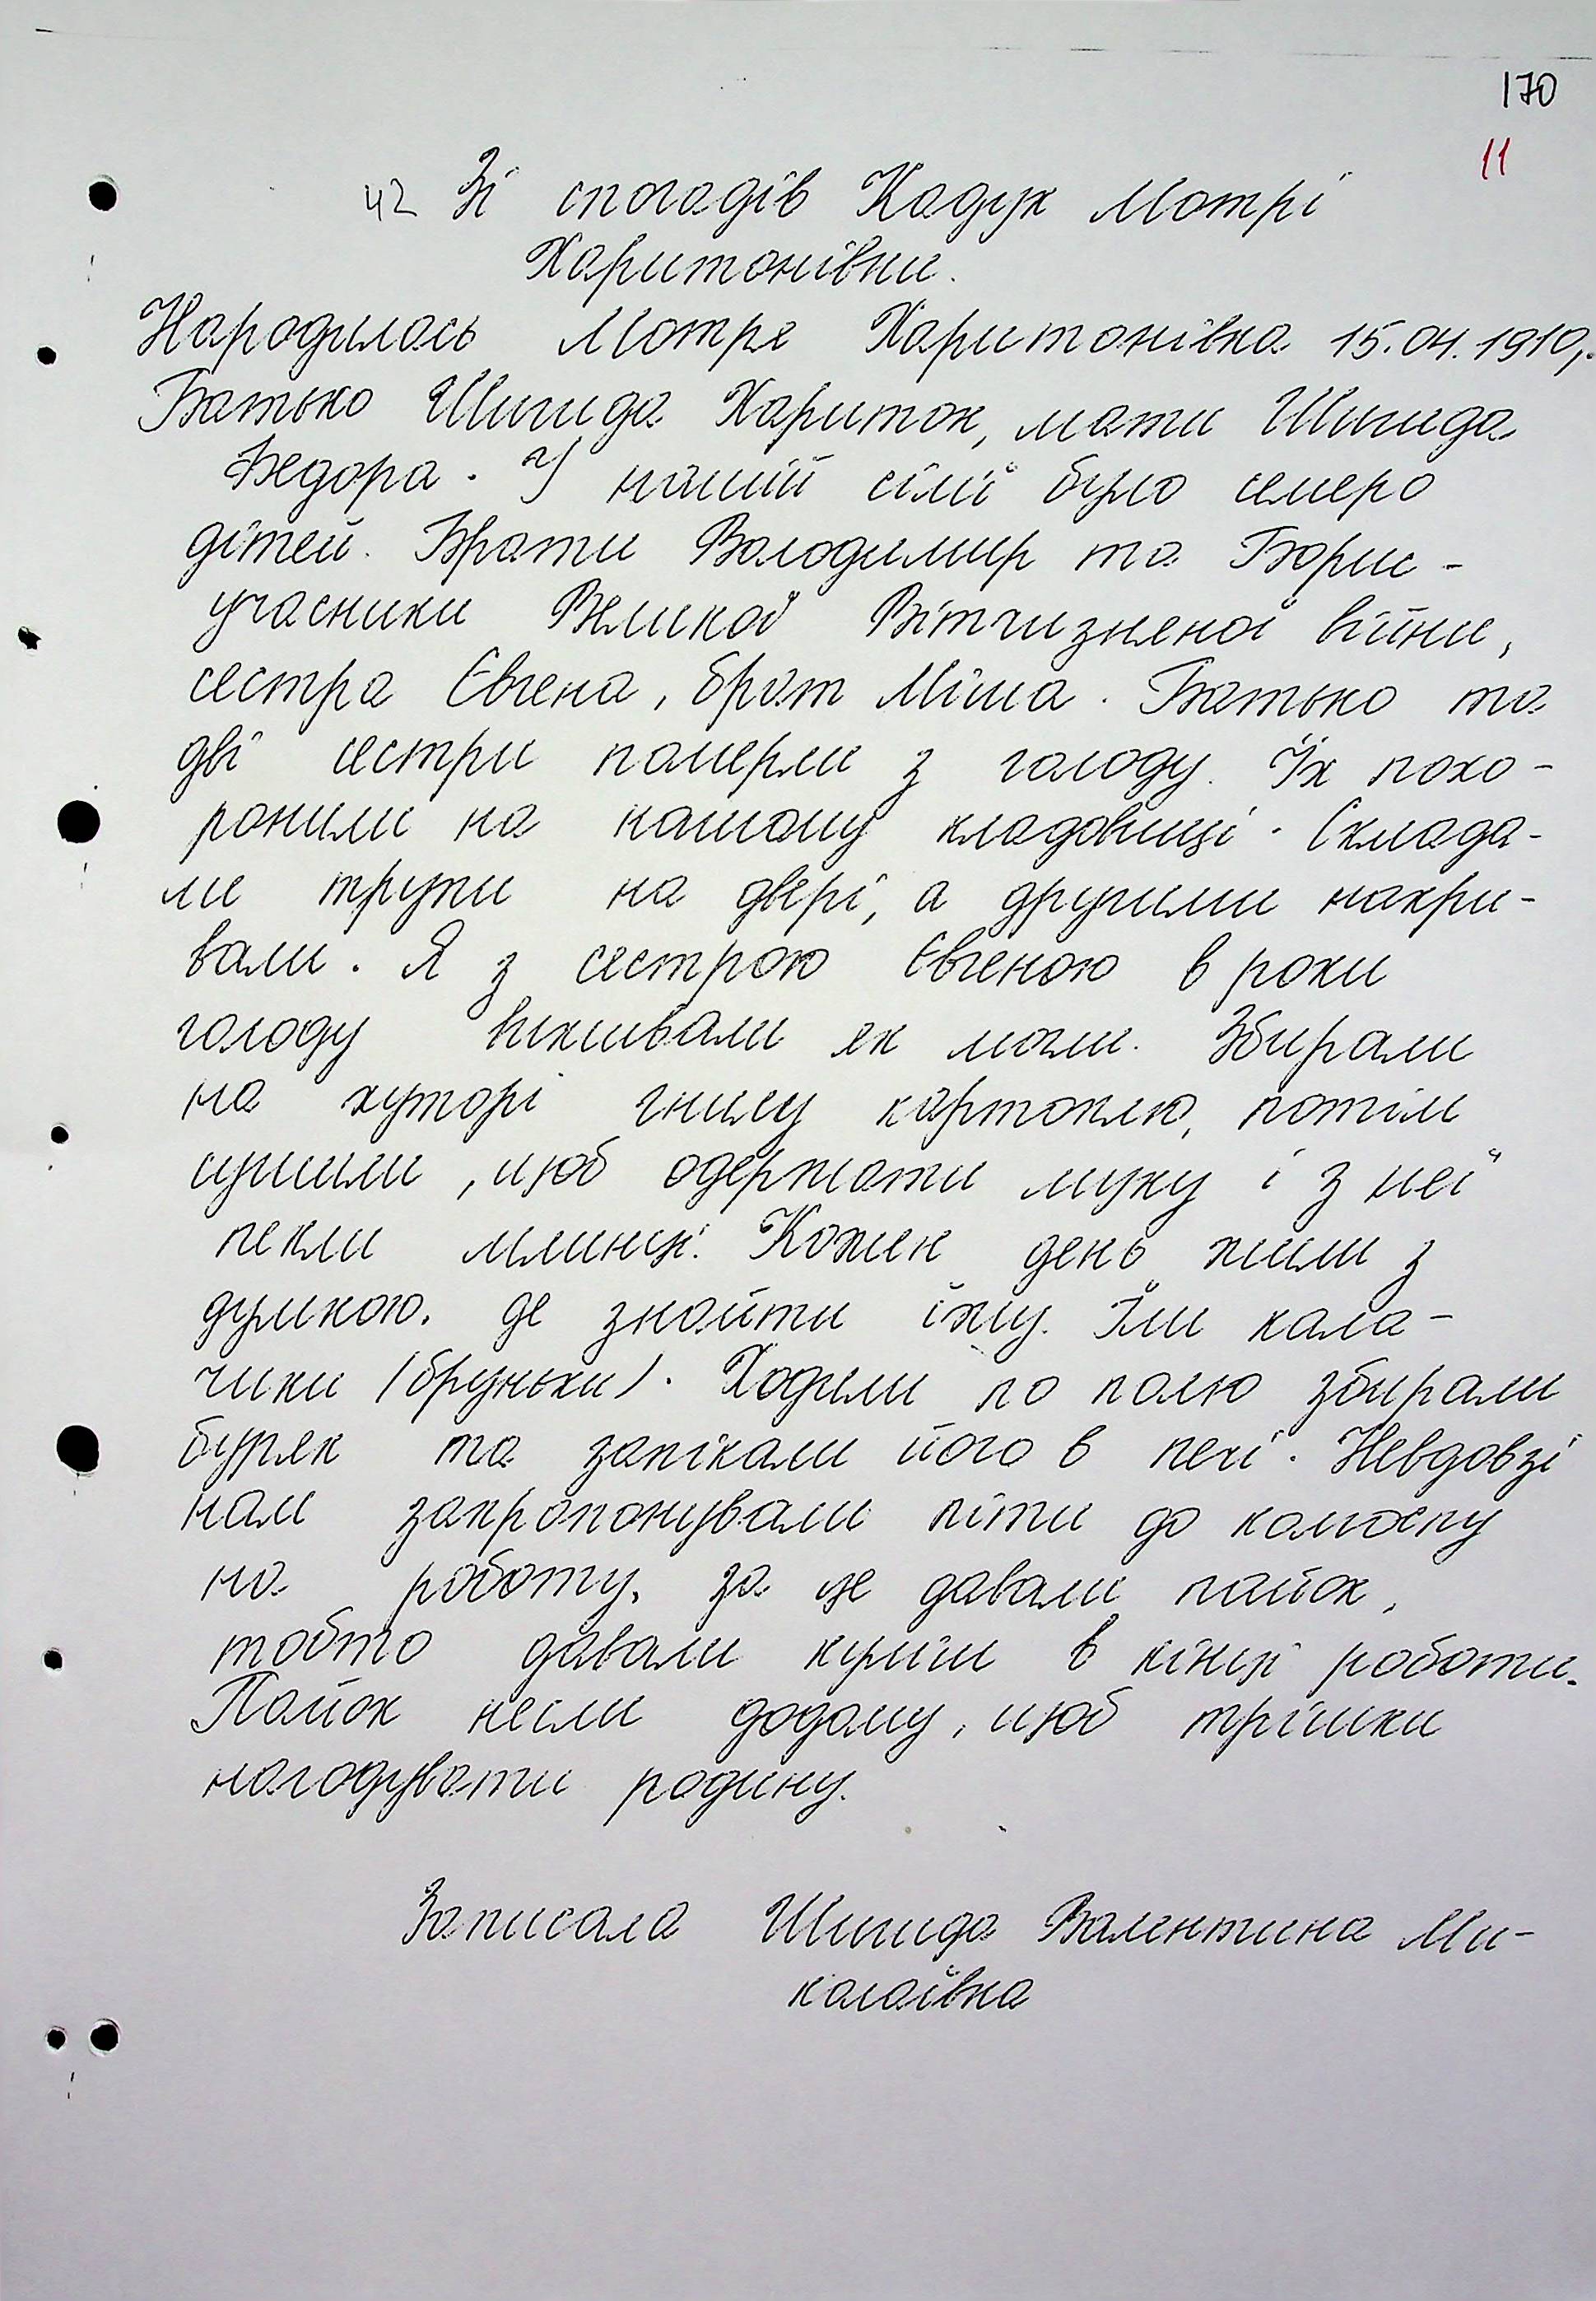 170
11
42 Зі спогадів Кадук Мотрі
Харитонівни.
Народилась Мотря Харитонівна 15.04.1910р.
Батько Шигида Харитон, мати Шигида
Федора. У нашій сім'ї було семеро
дітей. Брати Володимир та Борис -
учасники Великої Вітчизняної війни,
сестра Євгена, брат Міша. Батько та
дві сестри померли з голоду. Їх похо-
ронили на нашому кладовищі. Склада-
ли трупи на двері, а другими накри-
вали. Я з сестрою Євгеною в роки
голоду виживали як могли. Збирали
на хуторі гнилу картоплю, потім
сушили, щоб одержати муку і з неї
пекли млинці. Кожен день жили з
думкою, де знайти їжу. Їли кала-
чики (бруньки). Ходили по полю збирали
буряк та запікали його в печі. Невдовзі
нам запропонували піти до колгоспу
на роботу, за це давали пайок,
тобто давали куліш в кінці роботи.
Пайок несли додому, щоб трішки
нагодувати родину.
Записала Шигида Валентина Ми-
колаївна